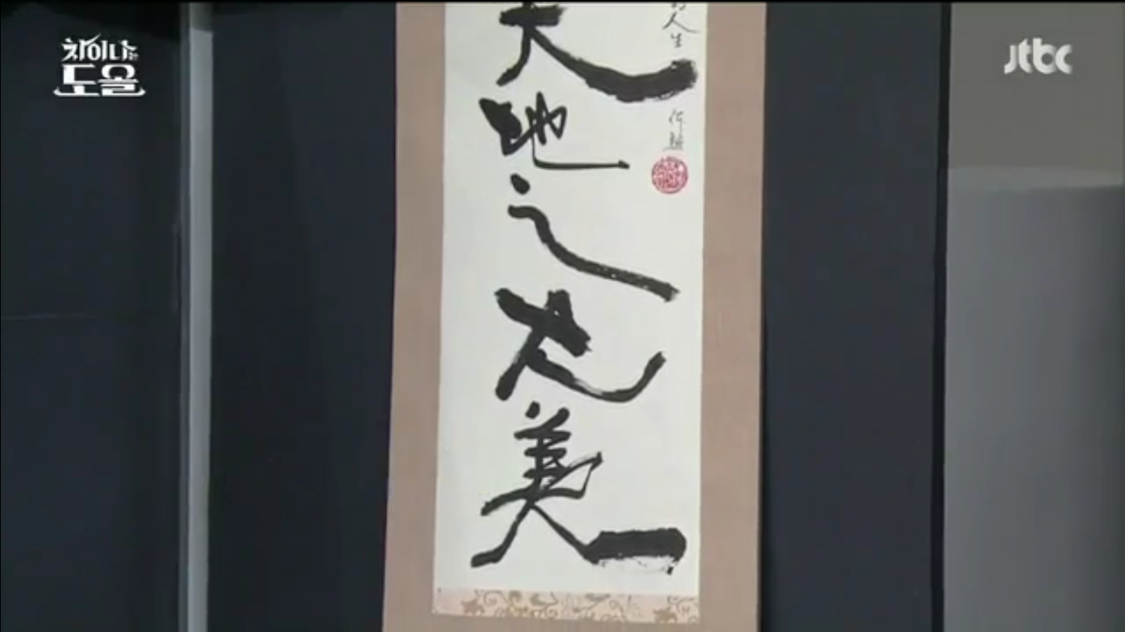 차이나는
도올
jtbc
天
地
之
大
美
人生